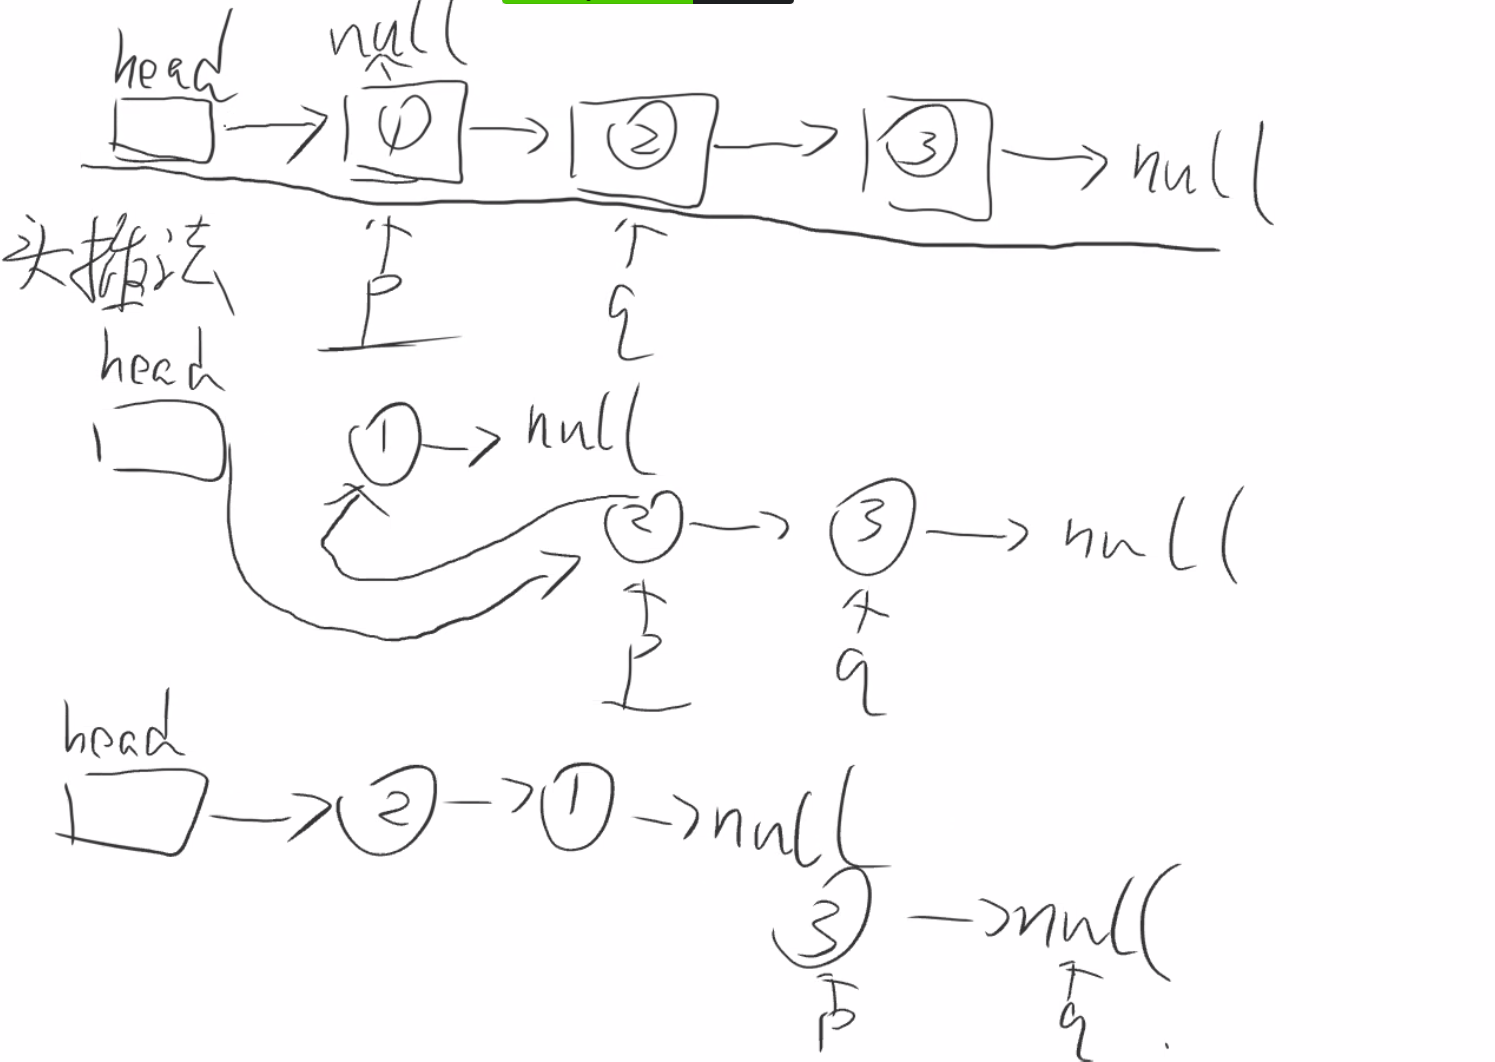 null
head
① ② ③ null
头插法
p q
head
① null
② ③ null
p q
head
② ① null
③ null
p q